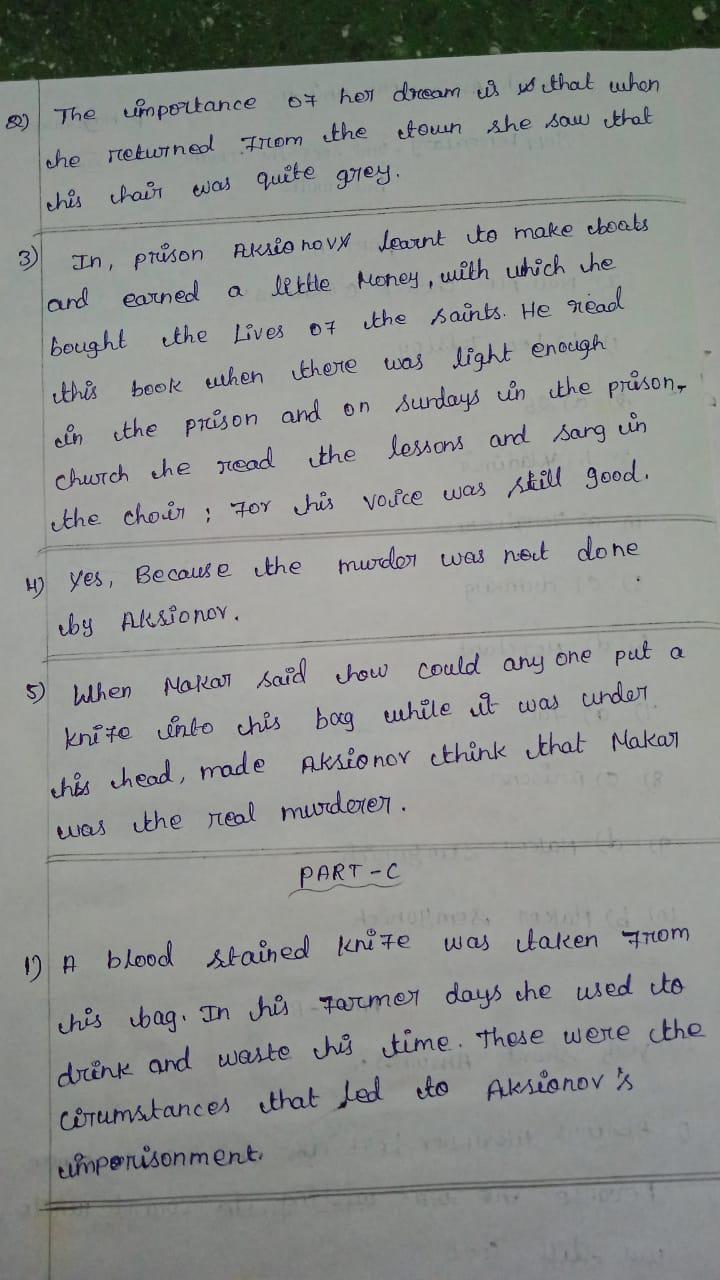 2) The importance of her dream is that when
he returned from the town she saw that
his hair was quite grey.
3) In, prison Aksionov learnt to make boats
and earned a little Money, with which he
bought the Lives of the saints. He read
this book when there was light enough
in the prison and on sundays in the prison-
church he read the lessons and sang in
the choir; For his voice was still good.
4) Yes, Because the murder was not done
by Aksionov.
5) When Makar said how could any one put a
knife into his bag while it was under
his head, made Aksionov think that Makar
was the real murderer.
PART-C
1) A blood stained knife was taken from
his bag. In his farmer days he used to
drink and waste his time. These were the
cirumstances that led to Aksionov's
imporisonment.